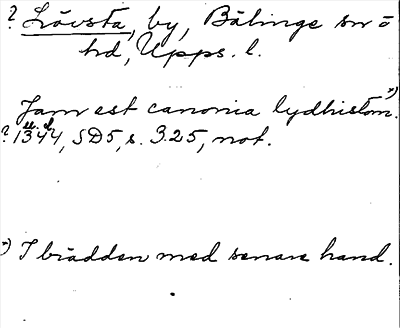 ? Lövsta, by, Bälinge sn o
hd, Upps. l.
Jam est canonia lydhistom. x)
? 1344, u. d. SD5, s. 325, not.
x) I brädden med senare hand.